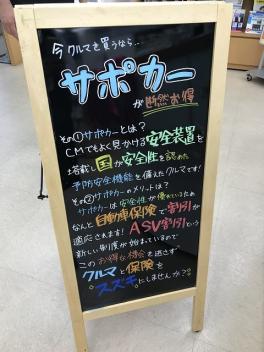 今クルマを買うなら…
サポカー
が断然お得
その①サポカーとは？
CMでもよく見かける安全装置を
搭載し国が安全性を認めた
予防安全機能を備えたクルマです！
その②サポカーのメリットは？
サポカーは安全性が優れているため
なんと自動車保険で割引が
適応されます！ASV割引という
新しい制度が始まっているので
このお得な機会を逃さず
クルマと保険を
スズキにしませんか？